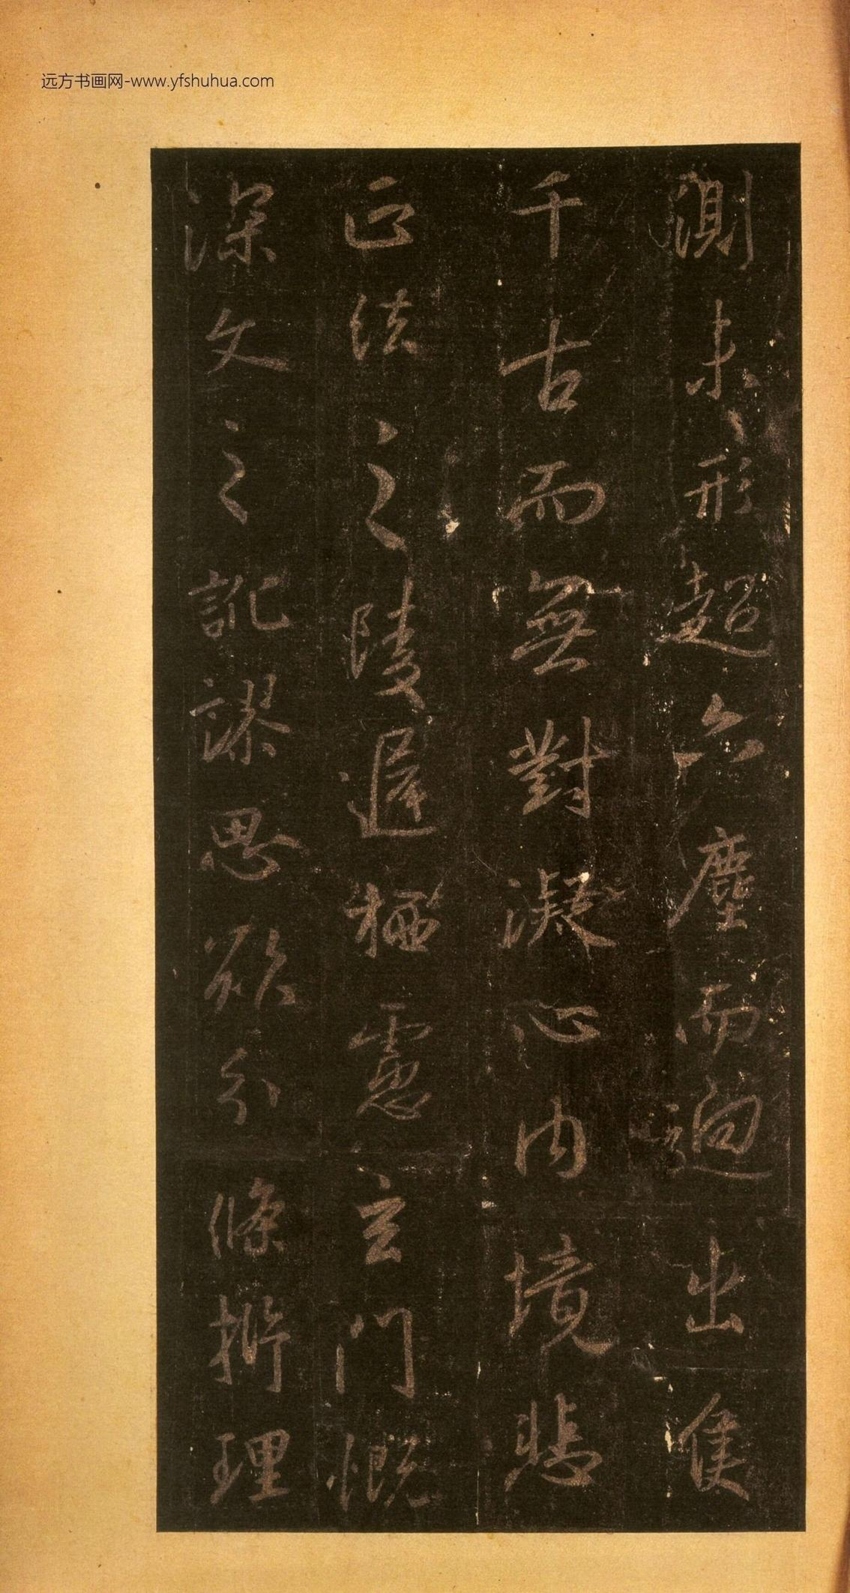 远方书画网-www.yfshuhua.com
測未形超六塵而迥出隻
千古而無對凝心內境悲
正法之陵遲栖慮玄門慨
深文之訛謬思欲分條析理